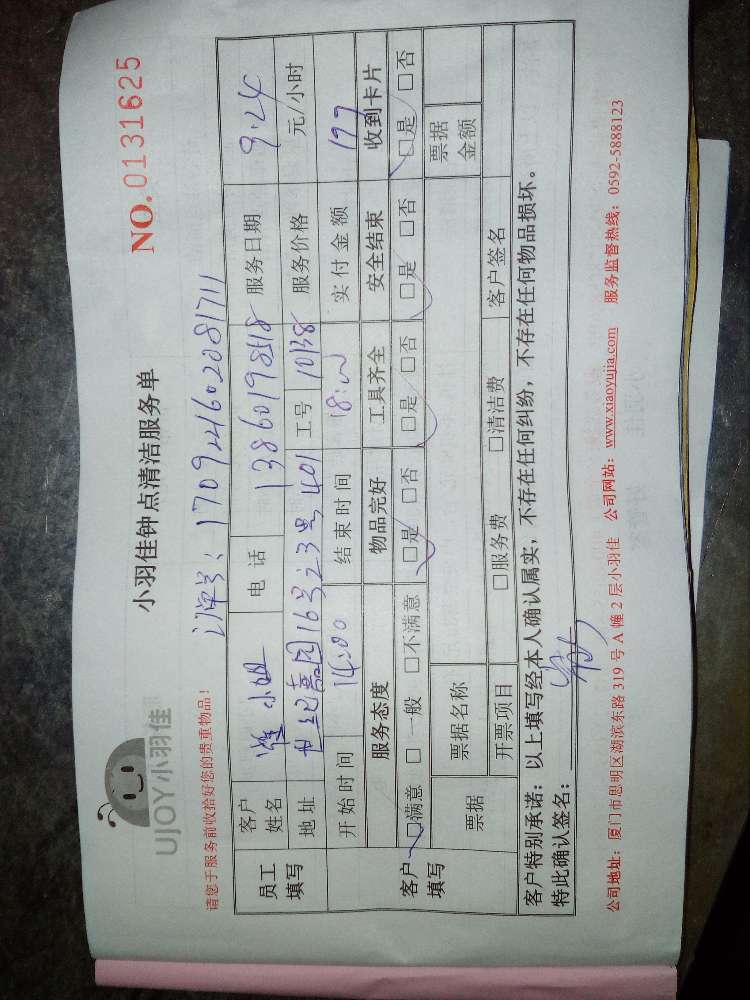 UJOY小羽佳
小羽佳钟点清洁服务单
NO. 0131625
请您于服务前收拾好您的贵重物品！
订单号：170924602081711
员工填写
客户姓名 小姐 电话 13860198518 服务日期 9.24
地址 世纪嘉园16号之3号401 工号 10138 服务价格 元/小时
开始时间 14:00 结束时间 18:00 实付金额 199
客户填写
服务态度 物品完好 工具齐全 安全结束 收到卡片
☑满意 □一般 □不满意 ☑是 □否 ☑是 □否 ☑是 □否 ☑是 □否
票据 票据名称 票据金额
开票项目 □服务费 □清洁费 客户签名
客户特别承诺：以上填写经本人确认属实，不存在任何纠纷，不存在任何物品损坏。
特此确认签名：
公司地址：厦门市思明区湖滨东路 319 号 A 幢 2 层小羽佳 公司网站：www.xiaoyujia.com 服务监督热线：0592-5888123